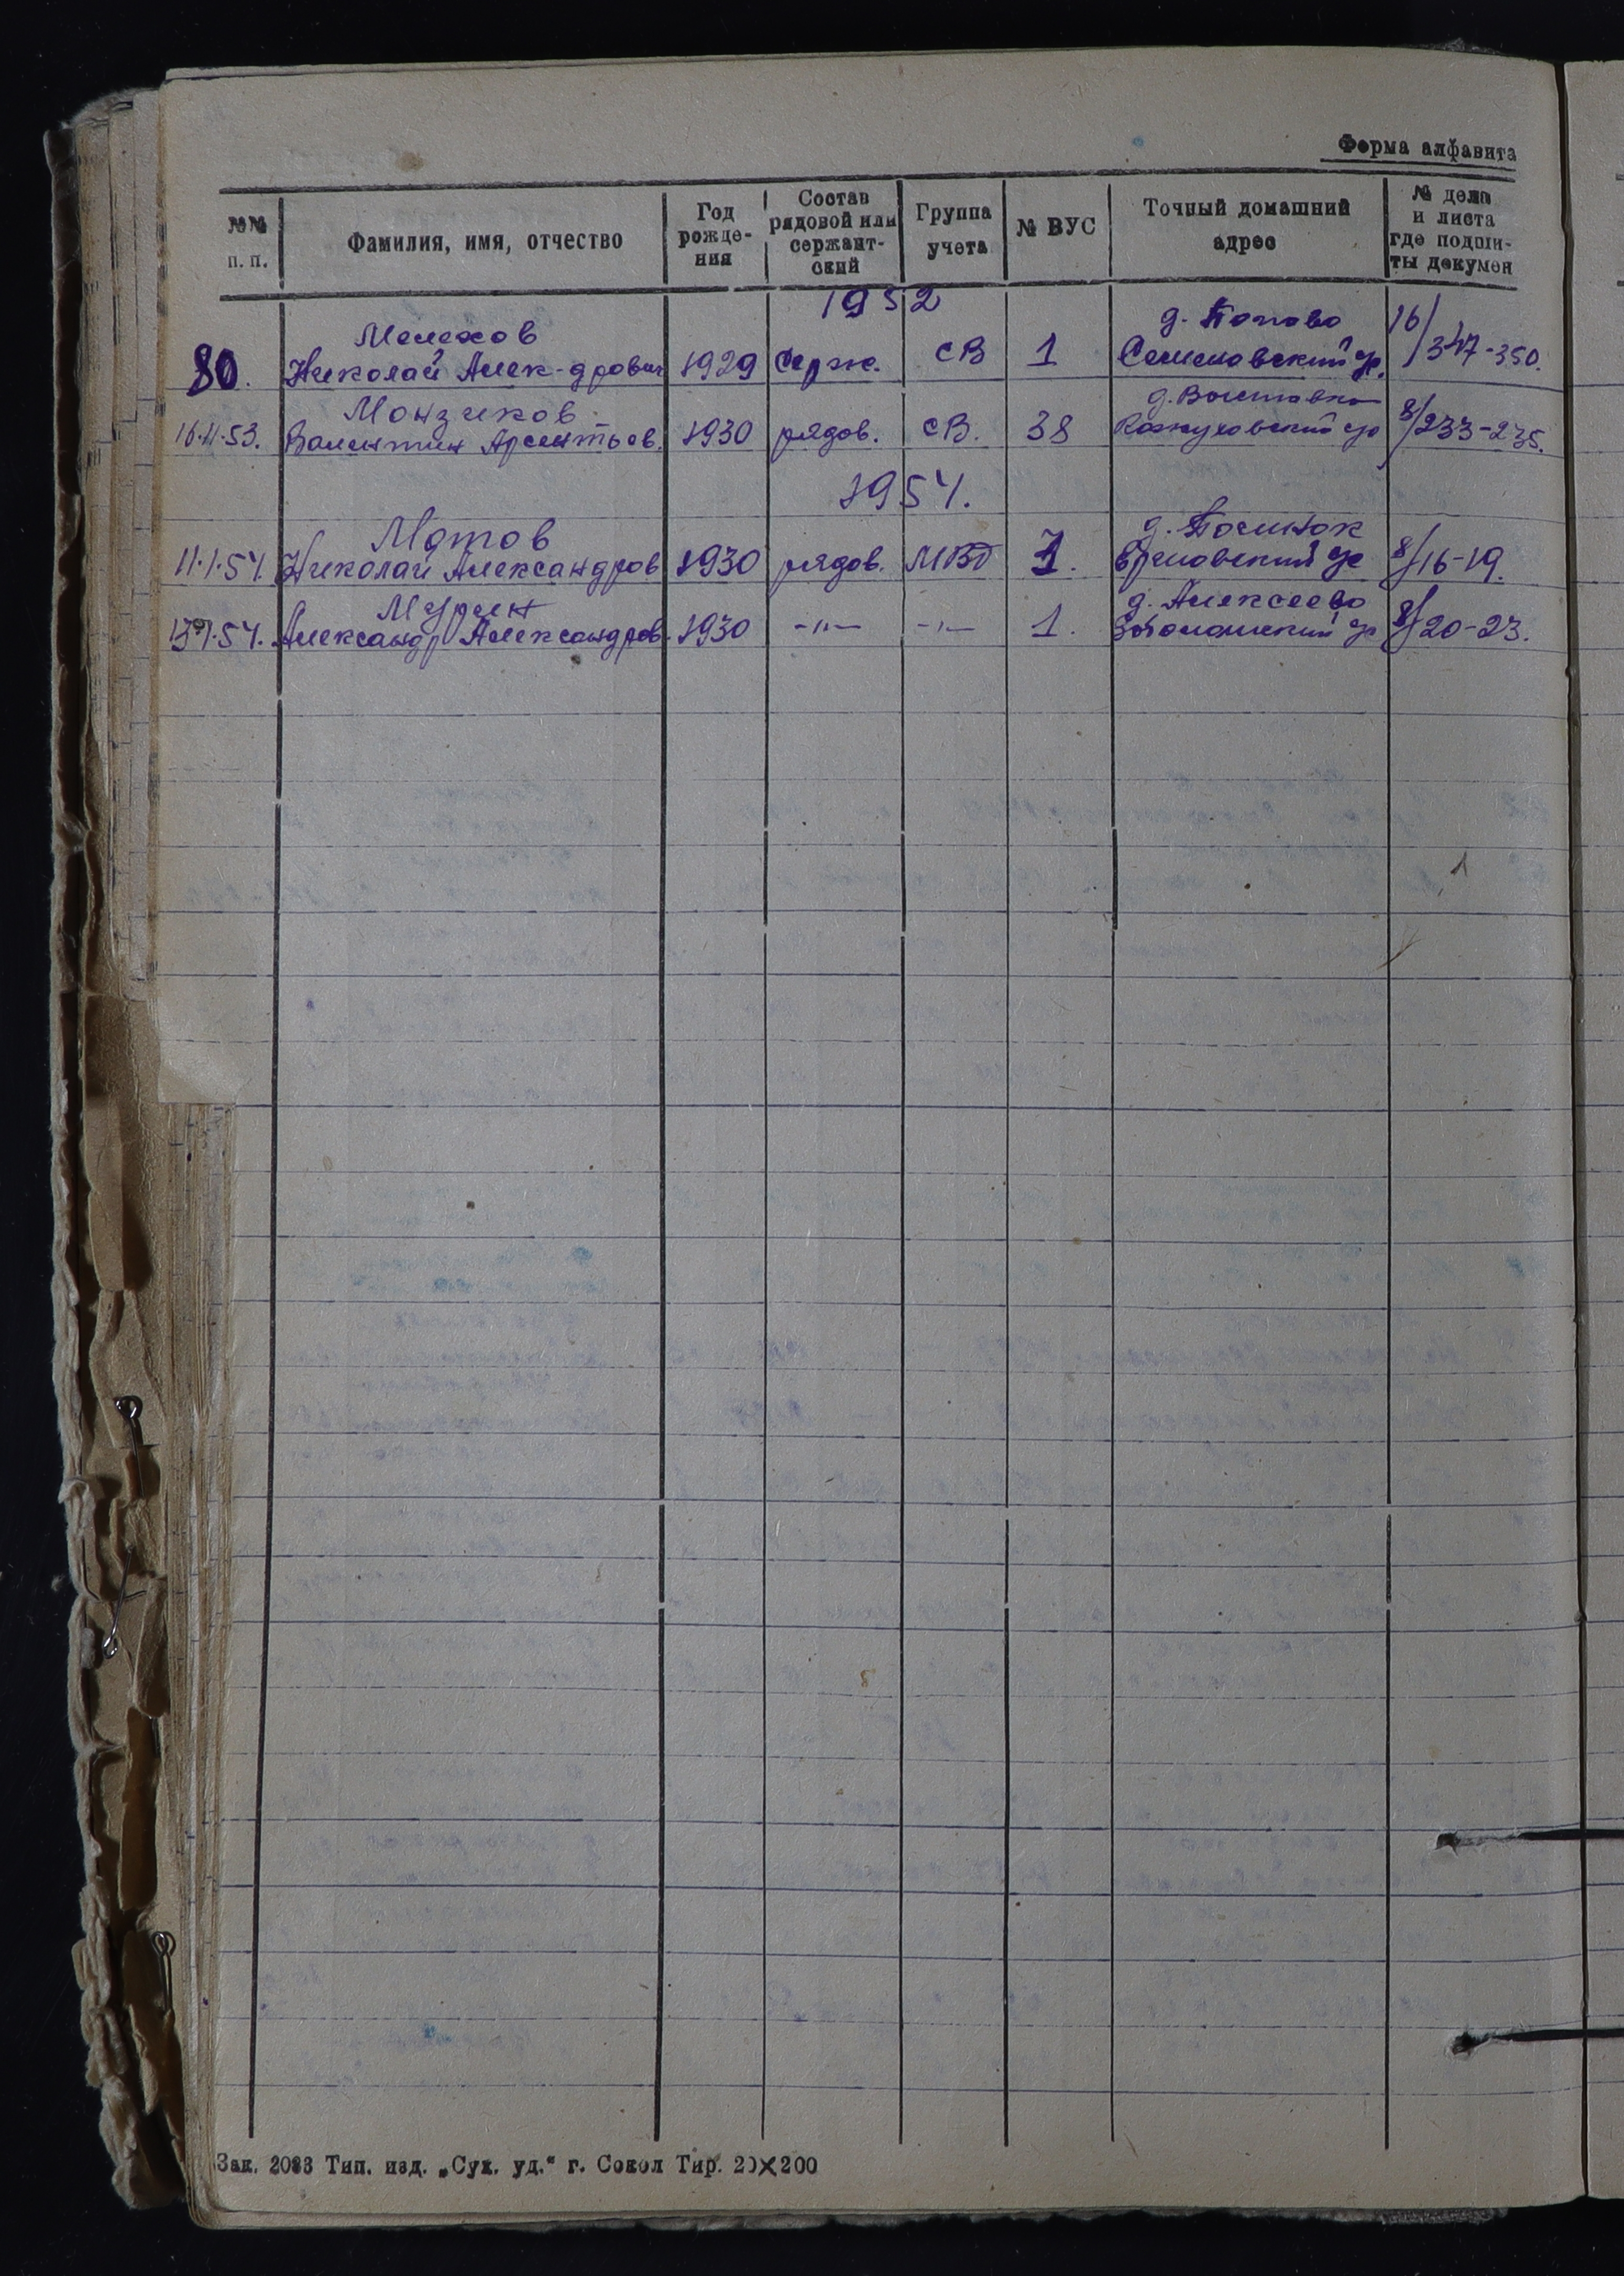 Форма алфавита
№№ п. п. Фамилия, имя, отчество Год рожде- ния Состав рядовой или сержант- ский Группа учета № ВУС Точный домашний адрес № дела и листа где подши- ты докумен
1952
Мелехов д. Попово 16/
80. Николай Алек-дрович 1929 Серж. СВ 1 347-350.
Монзиков д. Выставка
16.11.53. Валентин Арсентьев. 1930 рядов. СВ. 38 8/233-235.
1954.
Мотов д. Починок
11.1.54. Николай Александров 1930 рядов. МВД 1. 8/16-19.
Мурин д. Алексеево
Александр Александров. 1930 -"- -"- 1. 8/20-23.
Зак. 2083 Тип. изд. „Сух. уд.“ г. Сокол Тир. 20×200